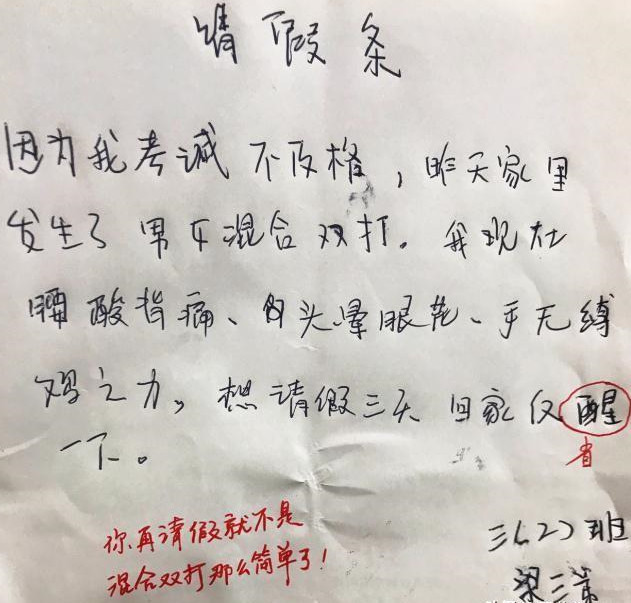 请假条
因为我考诫不及格，昨天家里
发生了男女混合双打。我现在
腰酸背痛、白头晕眼花、手无缚
鸡之力。想请假三天回家仅醒
省
一下。
你再请假就不是
混合双打那么简单了！
三(2)班
梁三